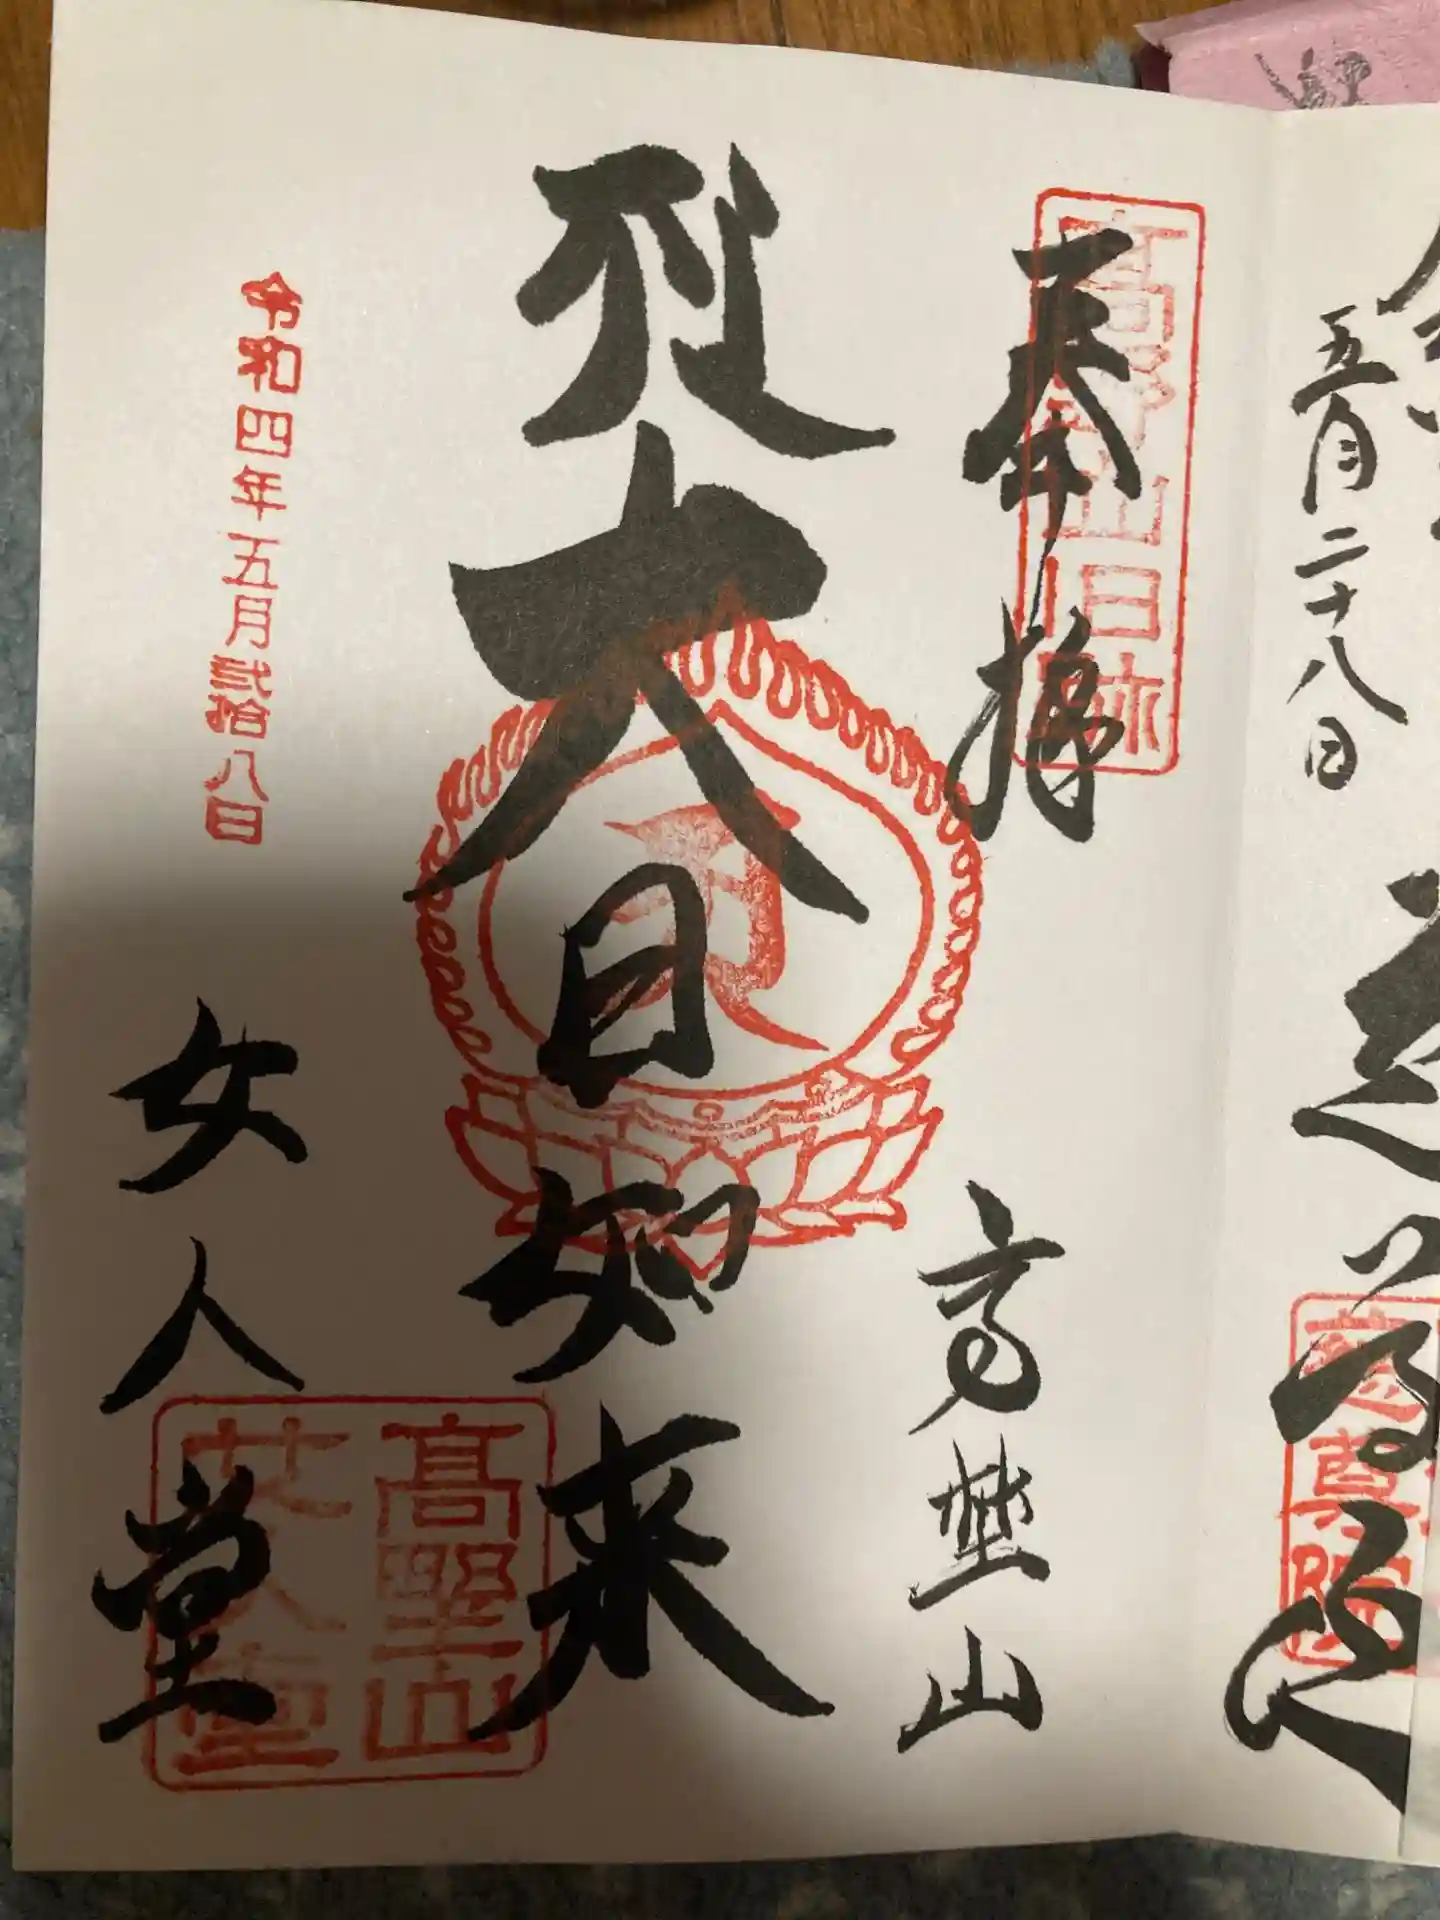 五月二十八日
奉拝
高野山
高野山旧跡
大日如来
令和四年五月弐拾八日
女人堂
高野山
女人堂